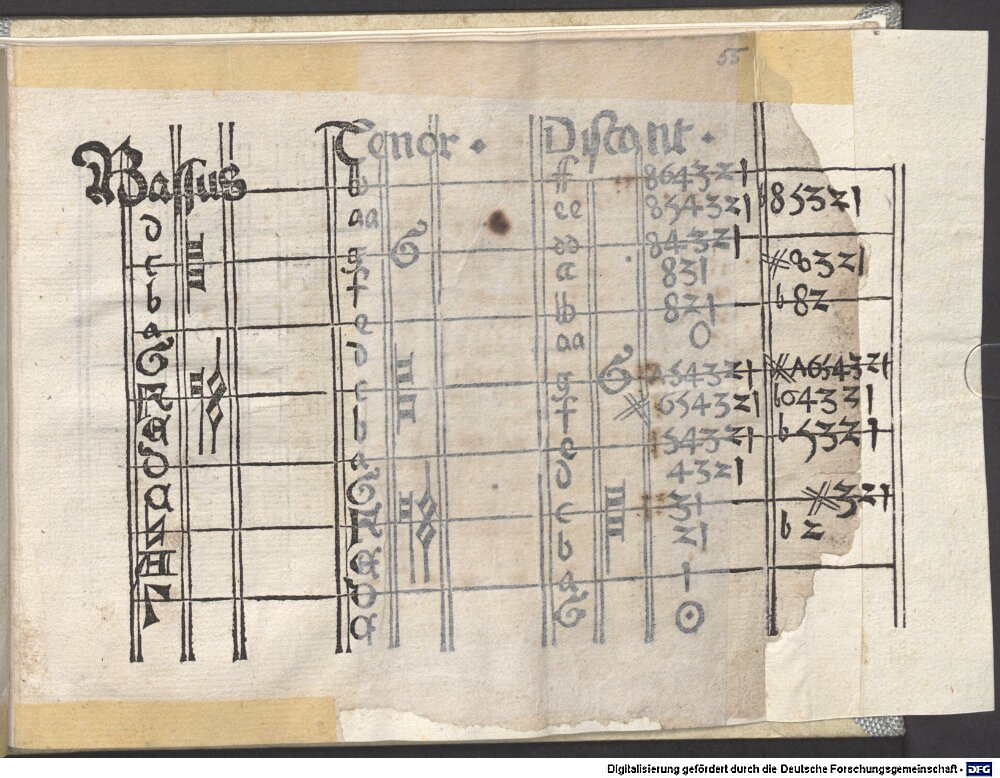 55
Bassus
Tenor.
Discant.
b ff 8643z1
d aa ee 8543z1 b853z1
c g G dd 843z1
f cc 831 #83z1
b e bb 8z1 b8z
a d aa 0
G c g G A543z1 #A6543z1
F b f #6543z1 b643z1
E a e 543z1 b53z1
D G d 43z1
C F c 31 #3z1
E b z1 bz
A D a 1
Γ C G
Digitalisierung gefördert durch die Deutsche Forschungsgemeinschaft - DFG